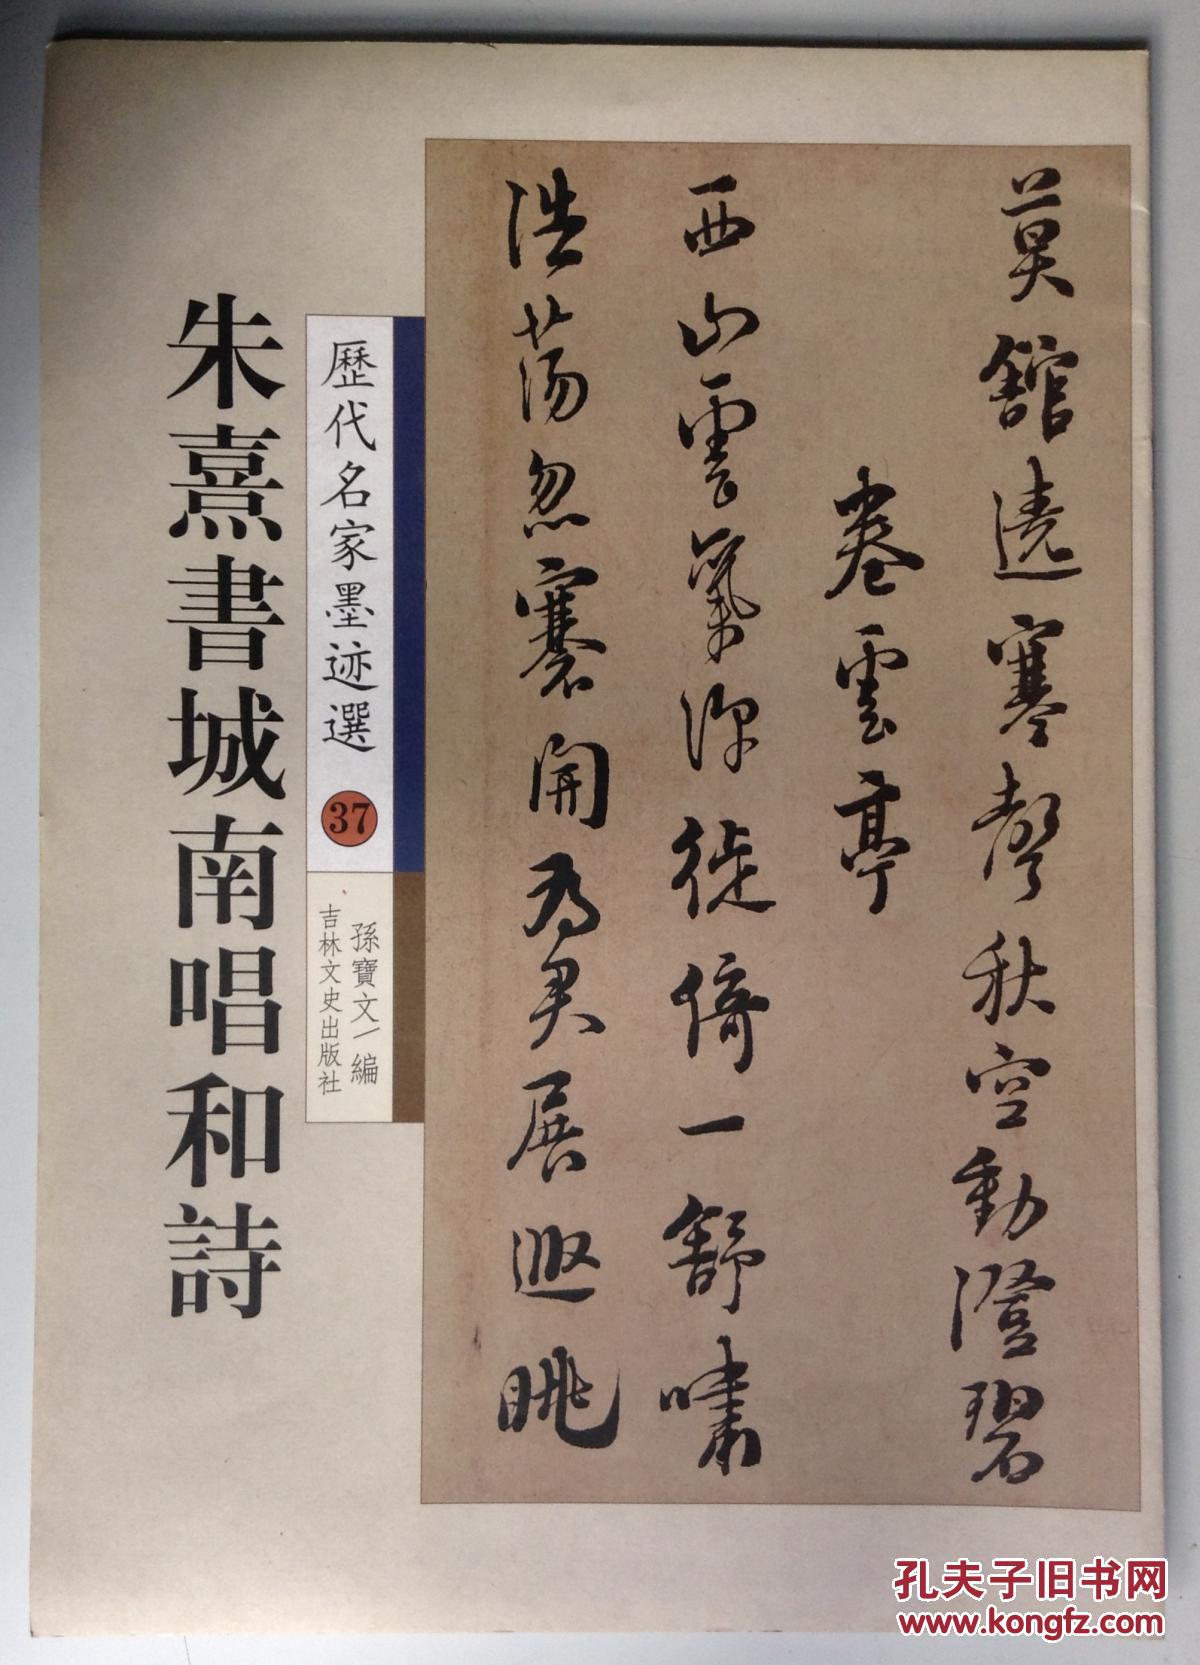 莫館遶寒聲秋空動澄碧
卷雲亭
西山雲氣深徙倚一舒嘯
浩蕩忽褰開為君展遐眺
歷代名家墨迹選 37
孫寶文/編
吉林文史出版社
朱熹書城南唱和詩
孔夫子旧书网
www.kongfz.com